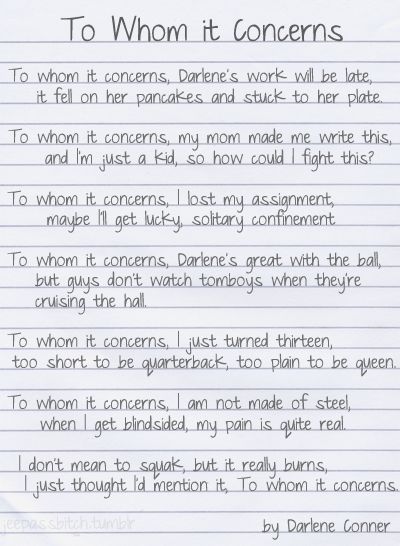 To Whom it Concerns
To whom it concerns, Darlene's work will be late,
it fell on her pancakes and stuck to her plate.
To whom it concerns, my mom made me write this,
and I'm just a kid, so how could I fight this?
To whom it concerns, I lost my assignment,
maybe I'll get lucky, solitary confinement
To whom it concerns, Darlene's great with the ball,
but guys don't watch tomboys when they're
cruising the hall.
To whom it concerns, I just turned thirteen,
too short to be quarterback, too plain to be queen.
To whom it concerns, I am not made of steel,
when I get blindsided, my pain is quite real.
I don't mean to squak, but it really burns,
I just thought I'd mention it, To whom it concerns.
jeepassbitch.tumblr
by Darlene Conner